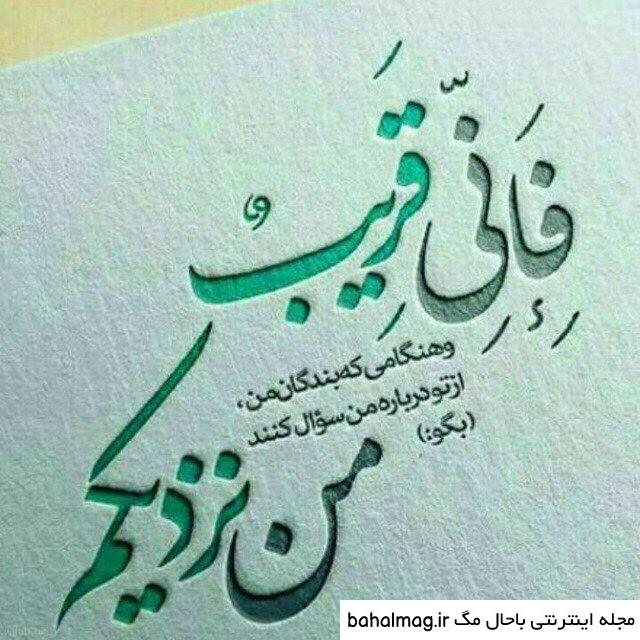 فَإِنِّی قَرِیبٌ
وهنگامی که بندگان من،
از تو درباره من سؤال کنند
(بگو:)
من نزدیکم
مجله اینترنتی باحال مگ bahalmag.ir